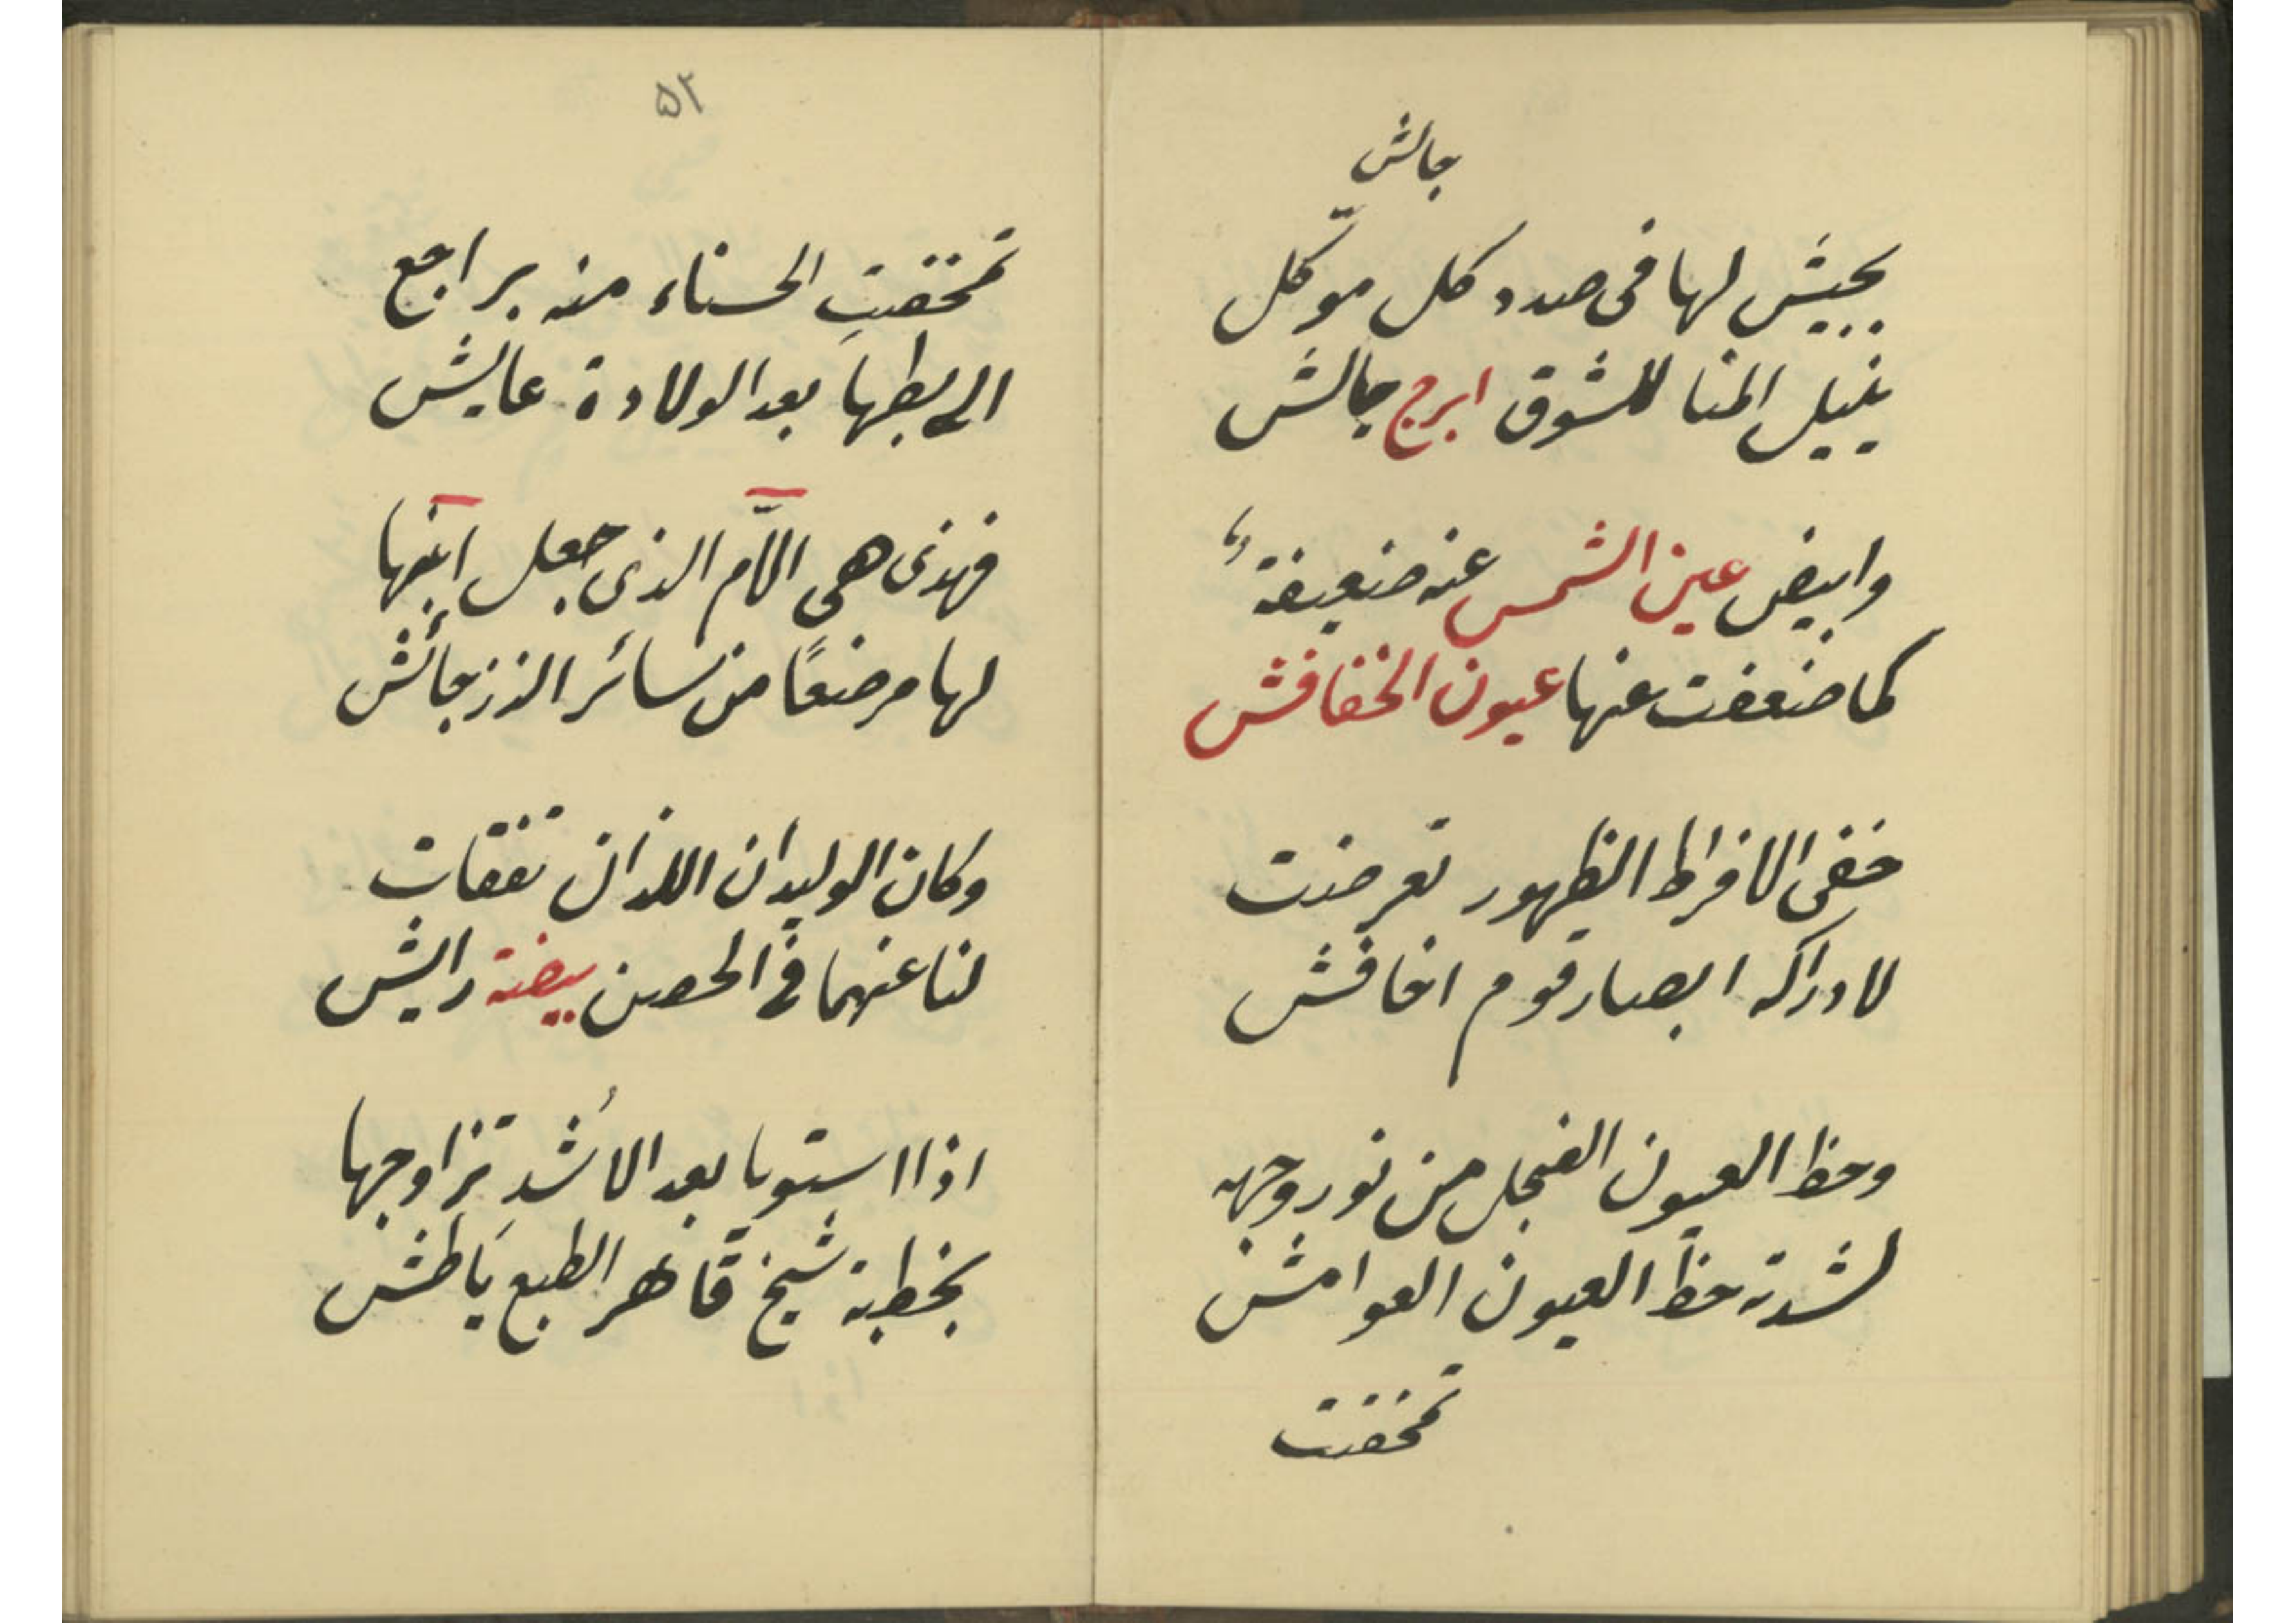 جالش
يجيش لها فى صدد كل موكّل
ينيل المنا للشوق ابرج جالش
وابيض عين الشمس عنه ضعيفة
كما ضعفت عنها عيون الخفافش
خفى الافراط الظهور تعرضت
لادراكه ابصار قوم اخافش
وحظ العيون النجل من نور وجهه
لشدته حظ العيون العوامش
تمخضت
٥٢
تمخضت الحسناء منه براجع
الى بطنها بعد الولادة عايش
فهذى هى الاّم الذى جعل ابنها
لها مرضعًا من سائر الذر جائش
وكان الوليدان اللذان تفقات
لنا عنهما فى الحصن بيضة رايش
اذا استويا بعد الاشد تزاوجها
بخطبة شيخ قاهر الطبع ياطش